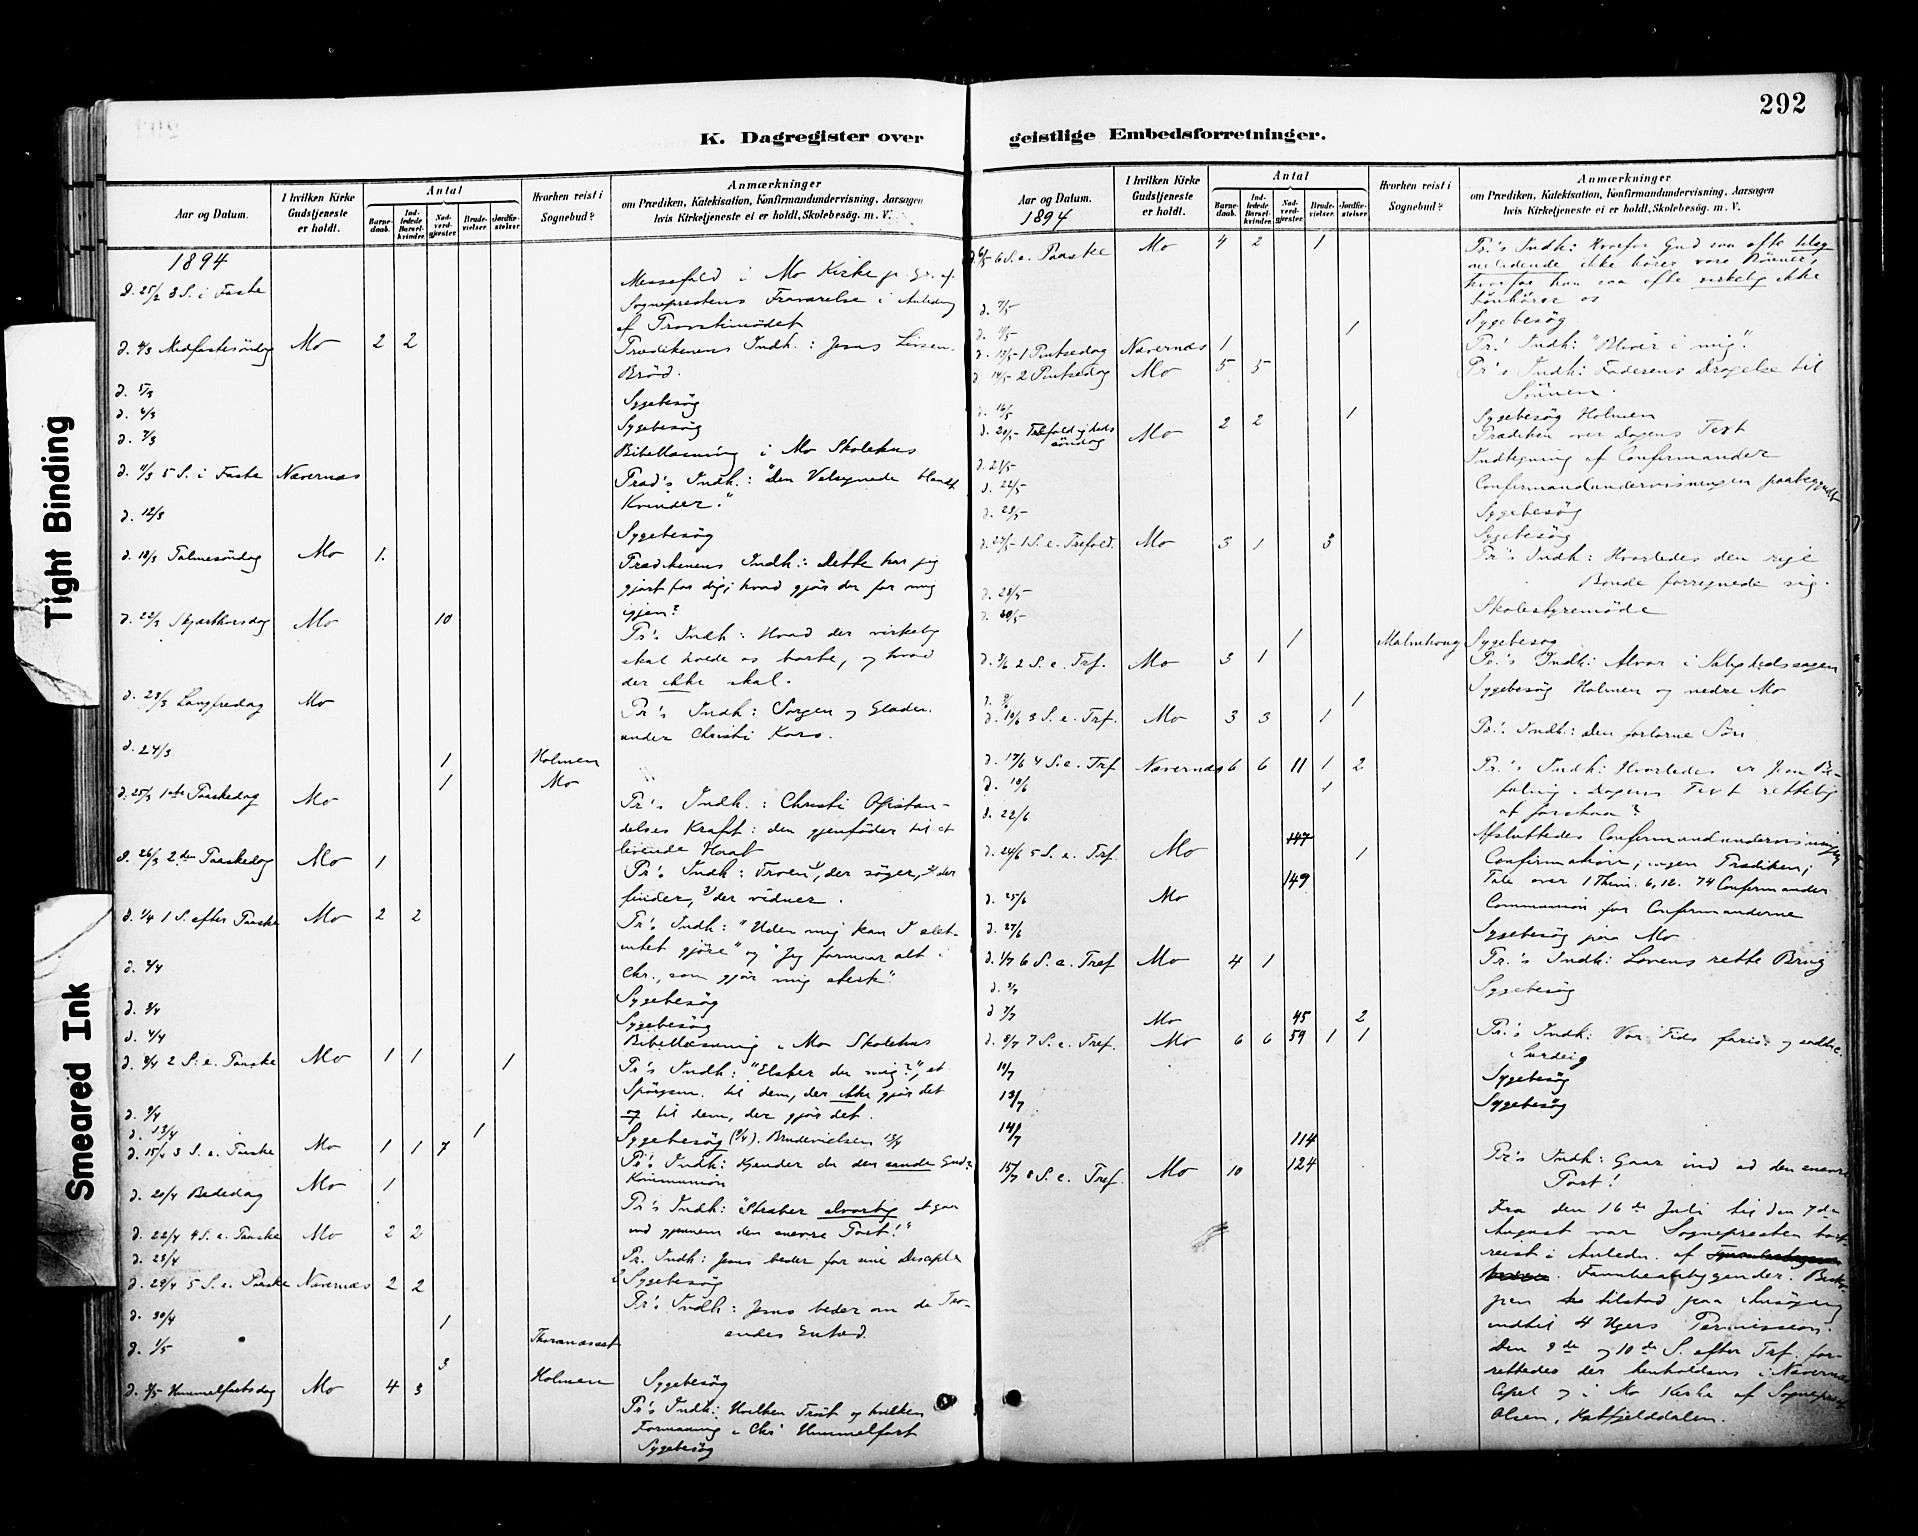 Tight Binding
Smeared Ink
292
K. Dagregister over
Aar og Datum.
I hvilken Kirke Gudstjeneste er holdt.
Antal
Barnedaab.
Indledede Barselkvinder.
Nadverdgjæster
Brudevielser
Jordfæstelser
Hvorhen reist i Sognebud?
Anmærkninger
om Prædiken, Katekisation, Konfirmandundervisning, Aarsagen
hvis Kirketjeneste ei er holdt, Skolebesøg. m. V.
1894
D. 25/2 3 S. i Faste Messefald i Mo Kirke p. Gr. af
Sogneprestens Fraværelse i Anledning
af Provstimødet
d. 4/3 Midfastesöndag Mo 2 2 Prædikenens Indh.: Jesus Livsens
Bröd.
d. 5/3 Sygebesög
d. 6/3 Sygebesög
d. 7/3 Bibellæsning i Mo Skolehus
d. 11/3 5 S. i Faste Nævernæs Præd's Indh.: "Den Velsignede blandt
Kvinder."
d. 12/3 Sygebesög
d. 18/3 Palmesöndag Mo 1. Prædikenens Indh.: Dette har jeg
gjort for dig; hvad gjör du for mig
igjen?
d. 22/3 Skjærthorsdag Mo 10 Pr's Indh: Hvad der virkelig
skal holde os borte, og hvad
der ikke skal.
d. 23/3 Langfredag Mo Pr's Indh: Sorgen og Glæden
under Christi Kors.
d. 24/3 1 Holmen
1 Mo
d. 25/3 1ste Paaskedag Mo Pr's Indh.: Christi Opstan-
delses Kraft: den gjenföder til et
levende Haab
d. 26/3 2den Paaskedag Mo 1 Pr's Indh: Troen 1) der söger, 2) der
finder, 3) der vidner.
d. 1/4 1 S. efter Paaske Mo 2 2 Pr's Indh: "Uden mig kan I slet
intet gjöre" og "Jeg formaar alt i
Chr., som gjör mig stærk."
d. 2/4 Sygebesög
d. 3/4 Sygebesög
d. 4/4 Bibellæsning i Mo Skolehus
d. 8/4 2 S. e. Paaske Mo 1 1 1 Pr's Indh: "Elsker du mig?", et
Spörgsm. til dem, der ikke gjör det
og til dem, der gjör det.
d. 9/4
d. 13/4 1 Sygebesög (9/4). Brudevielsen 13/4
d. 15/4 3 S. e. Paaske Mo 1 1 7 Pr's Indh: Kjender du den sande Gud?
Kommunion
d. 20/4 Bededag Mo 1 Pr's Indh: "Stræber alvorlig at gaa
ind gjennem den snevre Port!"
d. 22/4 4 S. e. Paaske Mo 2 2 Pr. Indh: Jesus beder for sine Disciple
d. 23/4 Sygebesög
d. 29/4 5 S. e. Paaske Nævernæs 2 2 Pr's Indh: Jesus beder om de Tro-
endes Enhed.
d. 30/4 1
d. 1/5 3 Holmen Sygebesög
d. 3/5 Himmelfartsdag Mo 4 3 Pr's Indh: Hvilken Tröst og hvilken
Formaning i Chr Himmelfart
Sygebesög
geistlige Embedsforretninger.
Aar og Datum.
1894
I hvilken Kirke Gudstjeneste er holdt.
Antal
Barnedaab.
Indledede Barselkvinder.
Nadverdgjæster
Brudevielser
Jordfæstelser
Hvorhen reist i Sognebud?
Anmærkninger
om Prædiken, Katekisation, Konfirmandundervisning, Aarsagen
hvis Kirketjeneste ei er holdt, Skolebesøg. m. V.
d. 6/5 6 S. e. Paaske Mo 4 2 1 Pr's Indh: Hvorfor Gud saa ofte
ikke hörer vore Bönner,
hvorfor han saa ofte virkelig ikke
bönhörer os
d. 7/5 Sygebesög
1
d. 13/5 1 Pintsedag Nævernæs 1 Pr. Indh: "Bliver i mig".
d. 14/5 2 Pintsedag Mo 5 5 Pr's Indh: Faderens Dragelse til
Sönnen.
d. 16/5 1 Sygebesög Holmen
d. 20/5 Trefoldigheds
söndag Mo 2 2 Prædiken over Dagens Text
d. 21/5 Indtegning af Confirmander
d. 22/5 Confirmandundervisningen paabegyndt
d. 23/5 Sygebesög
Sygebesög
d. 27/5 1 S. e. Trefold. Mo 3 1 3 Pr's Indh: Hvorledes den rige
Bonde forregnede sig.
d. 28/5 Skolestyremöde
1 Malmhaug Sygebesög
d. 3/6 2 S. e. Trf. Mo 3 1 Pr's Indh: Alvor i Salighedssagen
1 Sygebesög Holmen og nedre Mo
d. 10/6 3 S. e. Trf. Mo 3 3 1 Pr's Indh.: Den fortorne Sön
d. 17/6 4 S. e. Trf Nævernæs 6 6 11 1 2 Pr's Indh: Hvorledes er Jesu Be-
faling i Dagens Text rettelig
at forstaa?
d. 18/6 1
d. 22/6 Afsluttedes Confirmandundervisningen
d. 24/6 5 S. e. Trf. Mo 147 1 Confirmation; ingen Prædiken;
Tale over 1 Thim. 6, 12. 74 Confirmander
d. 25/6 Mo 149 Communion for Confirmanderne
d. 27/6 Sygebesög paa Mo
d. 1/7 6 S. e. Tref Mo 4 1 Pr.'s Indh: Lovens rette Brug
d. 3/7 Sygebesög
d. 7/7 Mo 45 2
d. 8/7 7 S. e. Tref. Mo 6 6 59 1 1 Pr.'s Indh: Vor Tids faris. og sadduc.
Surdeig
10/7 Sygebesög
13/7 Sygebesög
14/7 114
15/7 8 S. e. Tref. Mo 10 124 Pr's Indh: Gaar ind ad den snevre
Port!
Fra den 16de Juli til den 7de
August var Sognepresten bort-
reist i Anledn. af
Familieanliggender. Bisko-
pen tilstod paa Ansögning
indtil 4 Ugers Permission.
Den 9de og 10de S. efter Trf. for-
rettedes der henholdsvis i Nævernæs
Capel og i Mo Kirke af Sogneprest
Olsen, Hatfjelddalen.